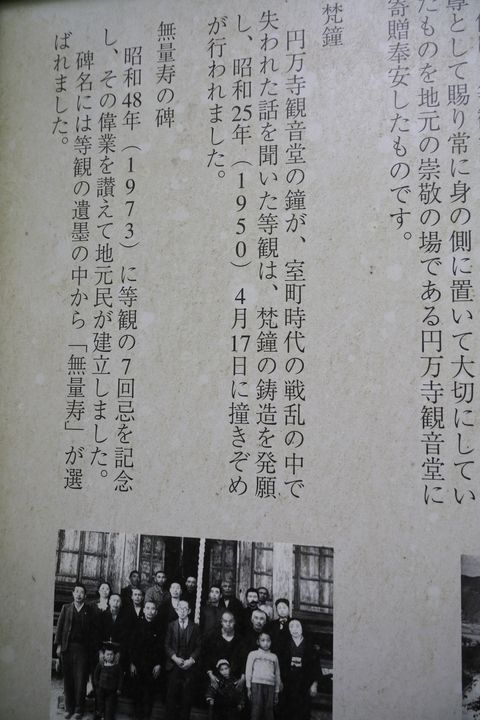 尊として賜り常に身の側に置いて大切にしてい
たものを地元の崇敬の場である円万寺観音堂に
寄贈奉安したものです。
梵鐘
円万寺観音堂の鐘が、室町時代の戦乱の中で
失われた話を聞いた等観は、梵鐘の鋳造を発願
し、昭和25年（1950）4月17日に撞きぞめ
が行われました。
無量寿の碑
昭和48年（1973）に等観の7回忌を記念
し、その偉業を讃えて地元民が建立しました。
碑名には等観の遺墨の中から「無量寿」が選
ばれました。